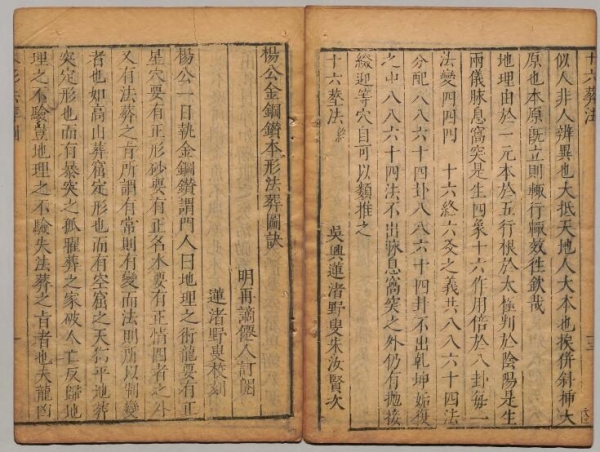 十六葬法
似人非人辨異也大抵天地人大本也挨併針挿大
原也本原既立則輒行輒效往欽哉
地理由於一元本於五行根於太極判於陰陽是生
兩儀脉息窩突是生四象十六作用倍於八卦每一
法變四四門 十六終六爻之義共八八六十四法
分配八八六十四卦八八六十四卦不出乾坤姤復
之中八八六十四法不出脉息窩突之外仍有拋接
綴迎等穴自可以類推之
吳興蓮渚野叟朱汝賢次
十六塟法 終
楊公金鋼鑽本形法葬圖訣
明甬謫僊人訂
蓮渚野叟校刻
楊公一日執金鋼鑽謂門人曰地理之術龍要有正
星穴要有正形砂要有正名水要有正情四者之外
又有法葬之旨所謂有常則有變而法則所以制變
者也如高山葬窩定形也而有空窟之天窩平地葬
突定形也而有暴突之孤曜葬之家破人亡反歸地
理之不驗豈地理之不驗失法葬之旨者也夫龍凶